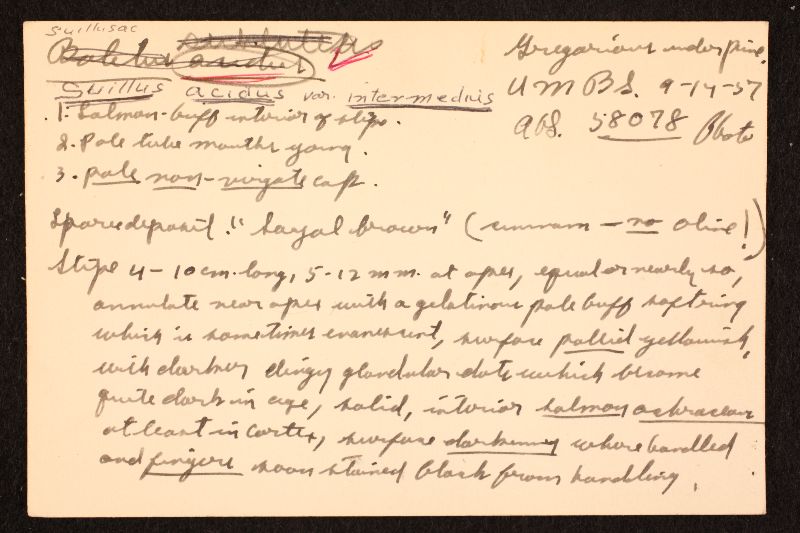 Suillusac
Boletus acidus subluteus
Suillus acidus var. intermedius
Gregarious under pine.
UMBS. 9-14-57
AHS. 58078 Photo
1. Salmon-buff interior of stipe.
2. Pale tube mouths young.
3. pale non-virgate cap.
Spore deposit: "Sayal brown" (cinnam — no olive!)
Stipe 4-10 cm. long, 5-12 mm. at apex, equal or nearly so,
annulate near apex with a gelatinous pale buff soft ring
which is sometimes evanescent, surface pallid yellowish,
with darker dingy glandular dots which become
quite dark in age, solid, interior salmon ochraceous
at least in cortex, surface darkening where handled
and fingers soon stained black from handling.